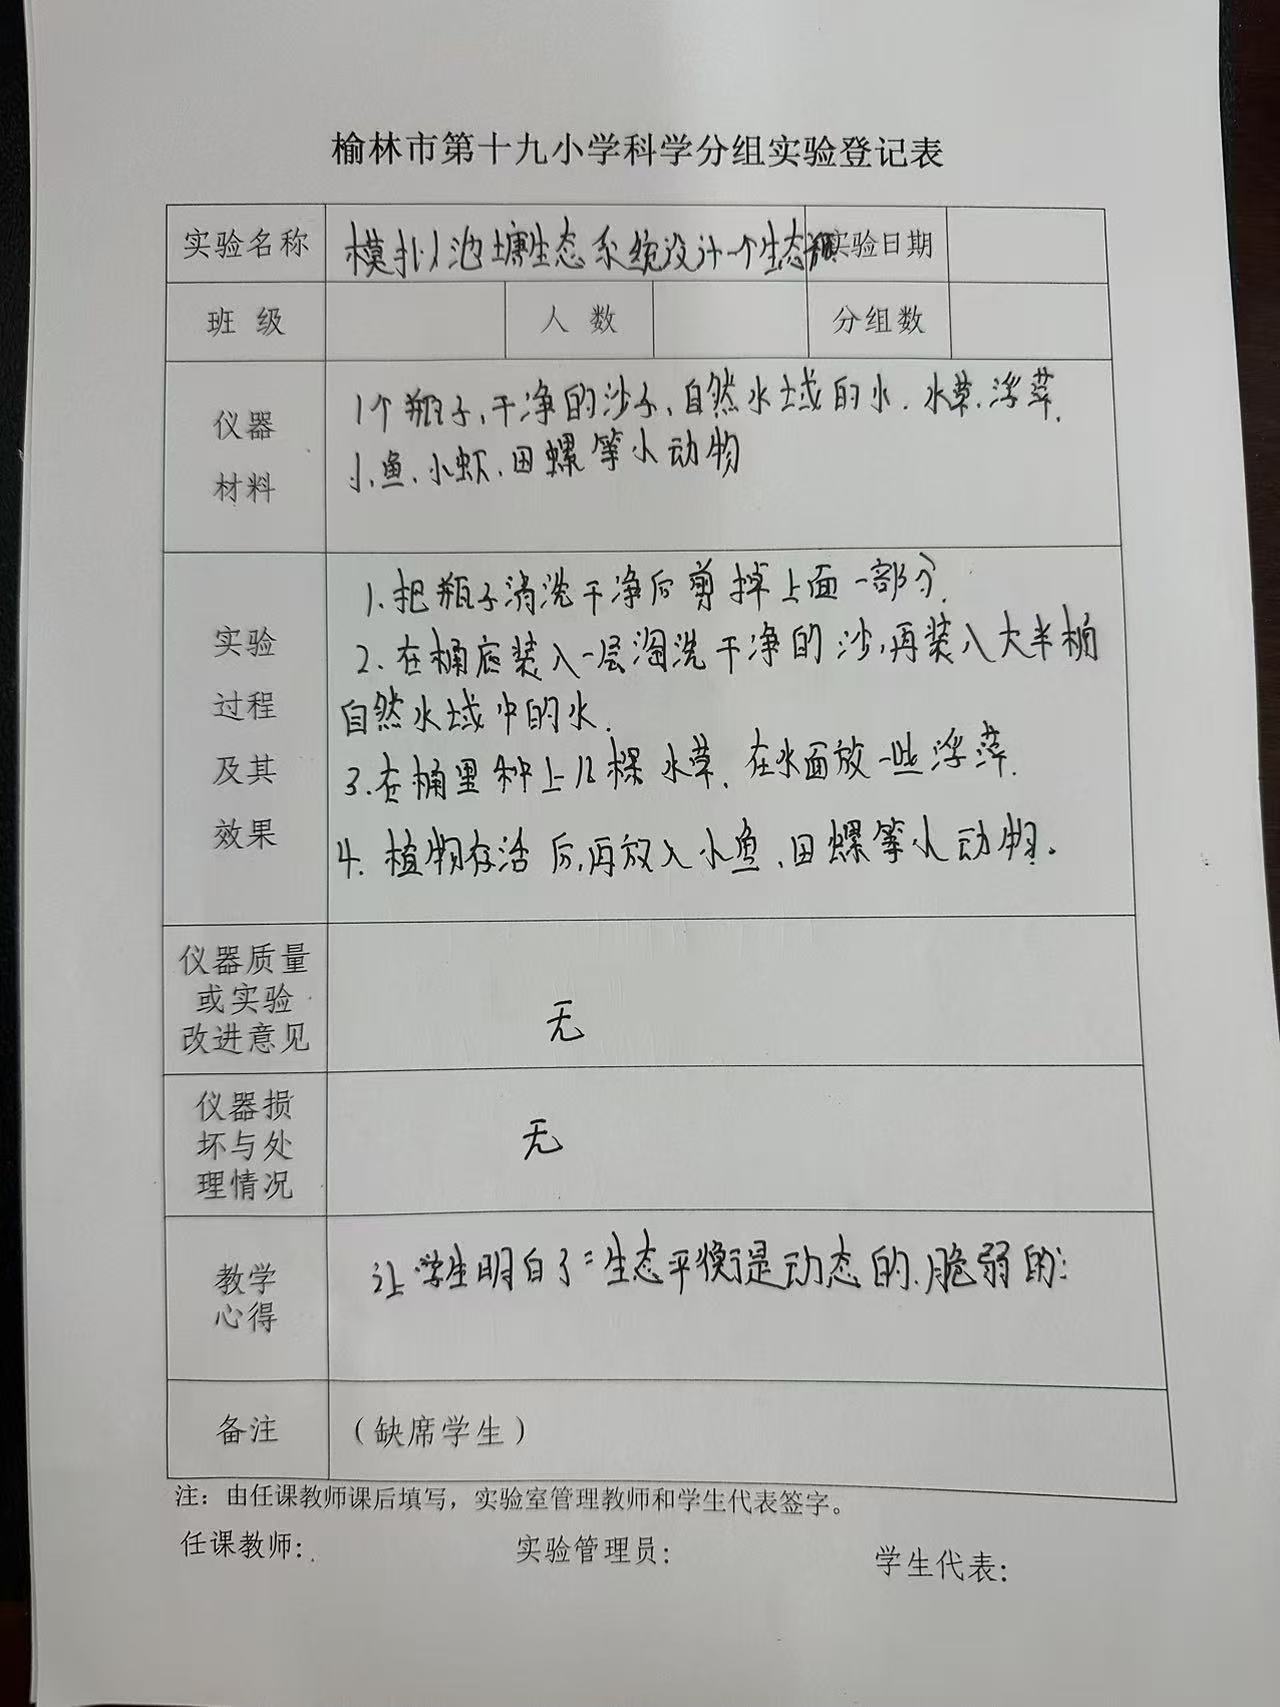 榆林市第十九小学科学分组实验登记表
实验名称 模拟池塘生态系统设计一个生态瓶 实验日期
班 级 人 数 分组数
仪器
材料
1个瓶子,干净的沙子、自然水域的水.水草.浮萍.
小鱼、小虾、田螺等小动物
实验
过程
及其
效果
1.把瓶子清洗干净后剪掉上面一部分.
2.在桶底装入一层淘洗干净的沙,再装入大半桶
自然水域中的水.
3.在桶里种上几棵水草.在水面放一些浮萍.
4.植物存活后,再放入小鱼、田螺等小动物.
仪器质量
或实验
改进意见
无
仪器损
坏与处
理情况
无
教学
心得
让学生明白了:生态平衡是动态的、脆弱的:
备注 (缺席学生)
注:由任课教师课后填写,实验室管理教师和学生代表签字。
任课教师: 实验管理员: 学生代表: